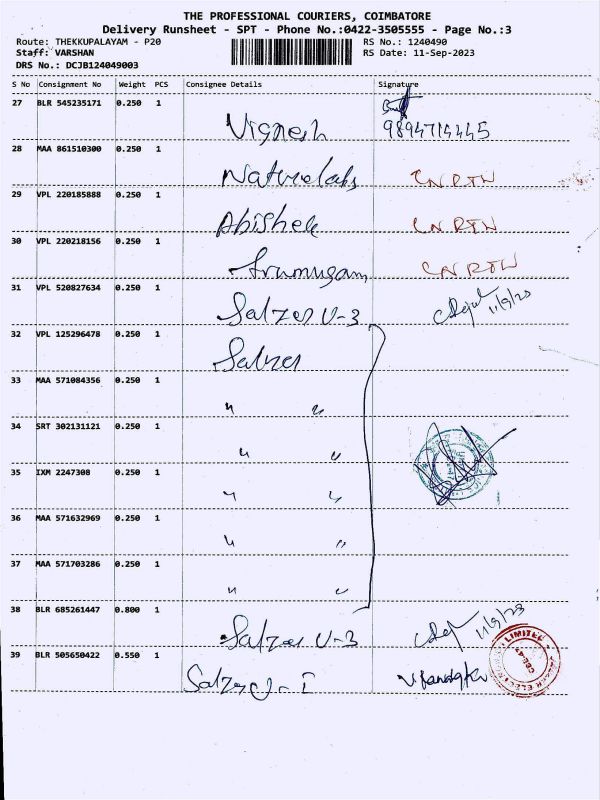 THE PROFESSIONAL COURIERS, COIMBATORE
Delivery Runsheet - SPT - Phone No.:0422-3505555 - Page No.:3
Route: THEKKUPALAYAM - P20 RS No.: 1240490
Staff: VARSHAN RS Date: 11-Sep-2023
DRS No.: DCJB124049003
S No Consignment No Weight PCS Consignee Details Signature
27 BLR 545235171 0.250 1
Vignesh 9894714445
28 MAA 861510300 0.250 1
Naturelabs CN RTN
29 VPL 220185888 0.250 1
Abishek CN RTN
30 VPL 220218156 0.250 1
Arumugam CN RTN
31 VPL 520827634 0.250 1
Salzer U-3 11/9/23
32 VPL 125296478 0.250 1
Salzer
33 MAA 571084356 0.250 1
" "
34 SRT 302131121 0.250 1
" "
35 IXM 2247308 0.250 1
" "
36 MAA 571632969 0.250 1
" "
37 MAA 571703286 0.250 1
" "
38 BLR 685261447 0.800 1
Salzer U-3 11/9/23
39 BLR 505650422 0.550 1
Salzer U-I
LIMITED